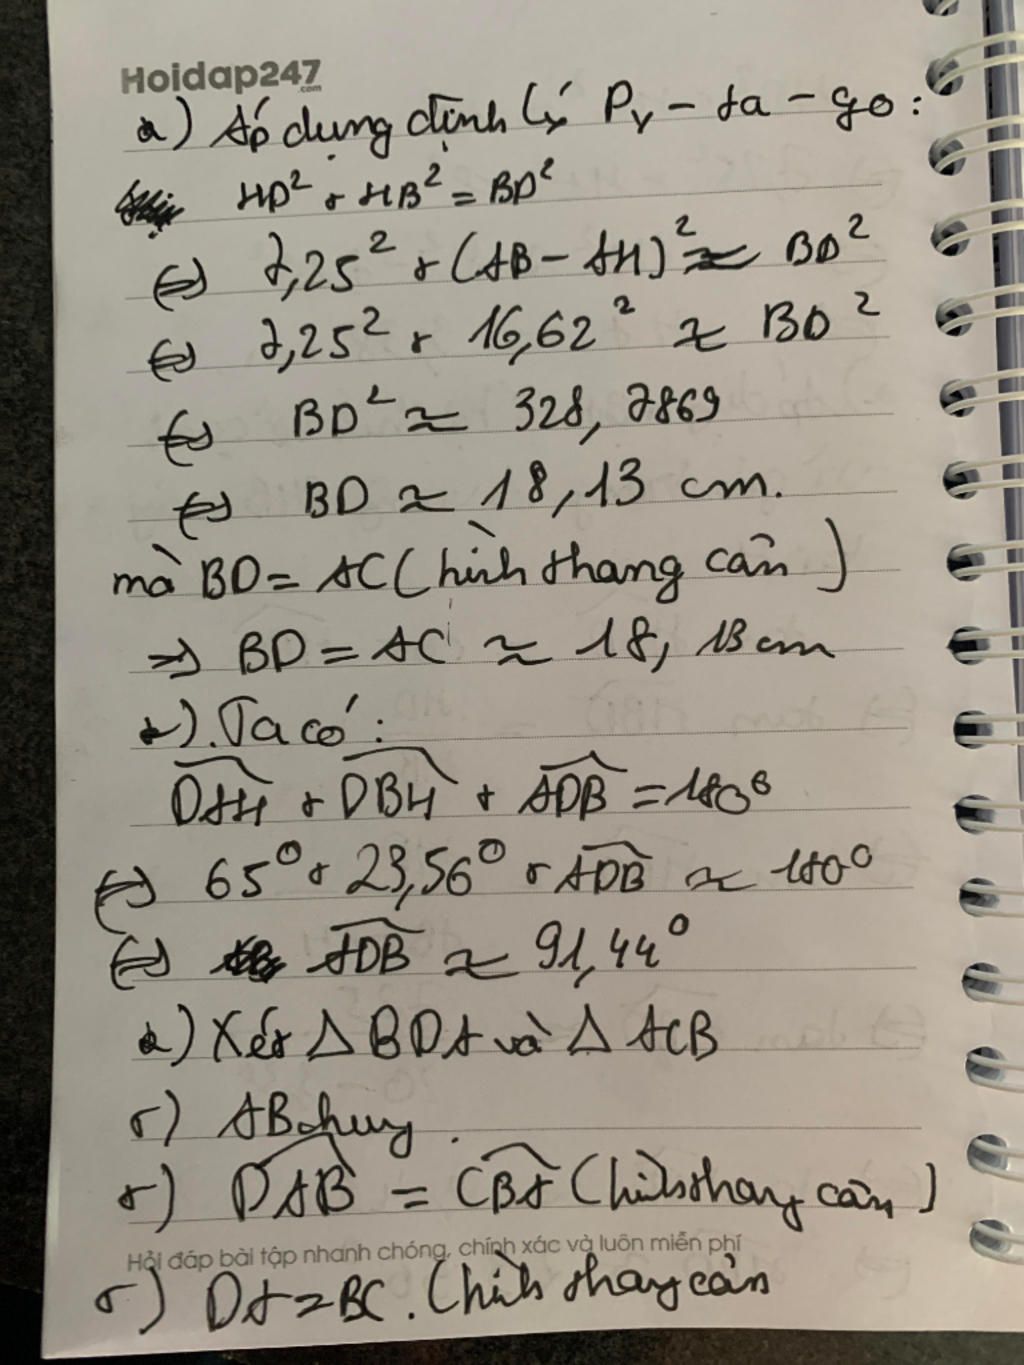 Hoidap247
.com
a) Áp dụng định lý Py-ta-go:
HD² + HB² = BD²
⇔ 7,25² + (AB - AH)² ≈ BD²
⇔ 7,25² + 16,62² ≈ BD²
⇔ BD² ≈ 328,7869
⇔ BD ≈ 18,13 cm.
mà BD = AC (hình thang cân)
⇒ BD = AC ≈ 18,13 cm
+). Ta có:
DAH + DBH + ADB = 180°
⇔ 65° + 23,56° + ADB ≈ 180°
⇔ ADB ≈ 91,44°
a) Xét Δ BDA và Δ ACB
+) AB chung.
+) DAB = CBA (hình thang cân)
Hỏi đáp bài tập nhanh chóng, chính xác và luôn miễn phí
+) DA = BC. (hình thang cân